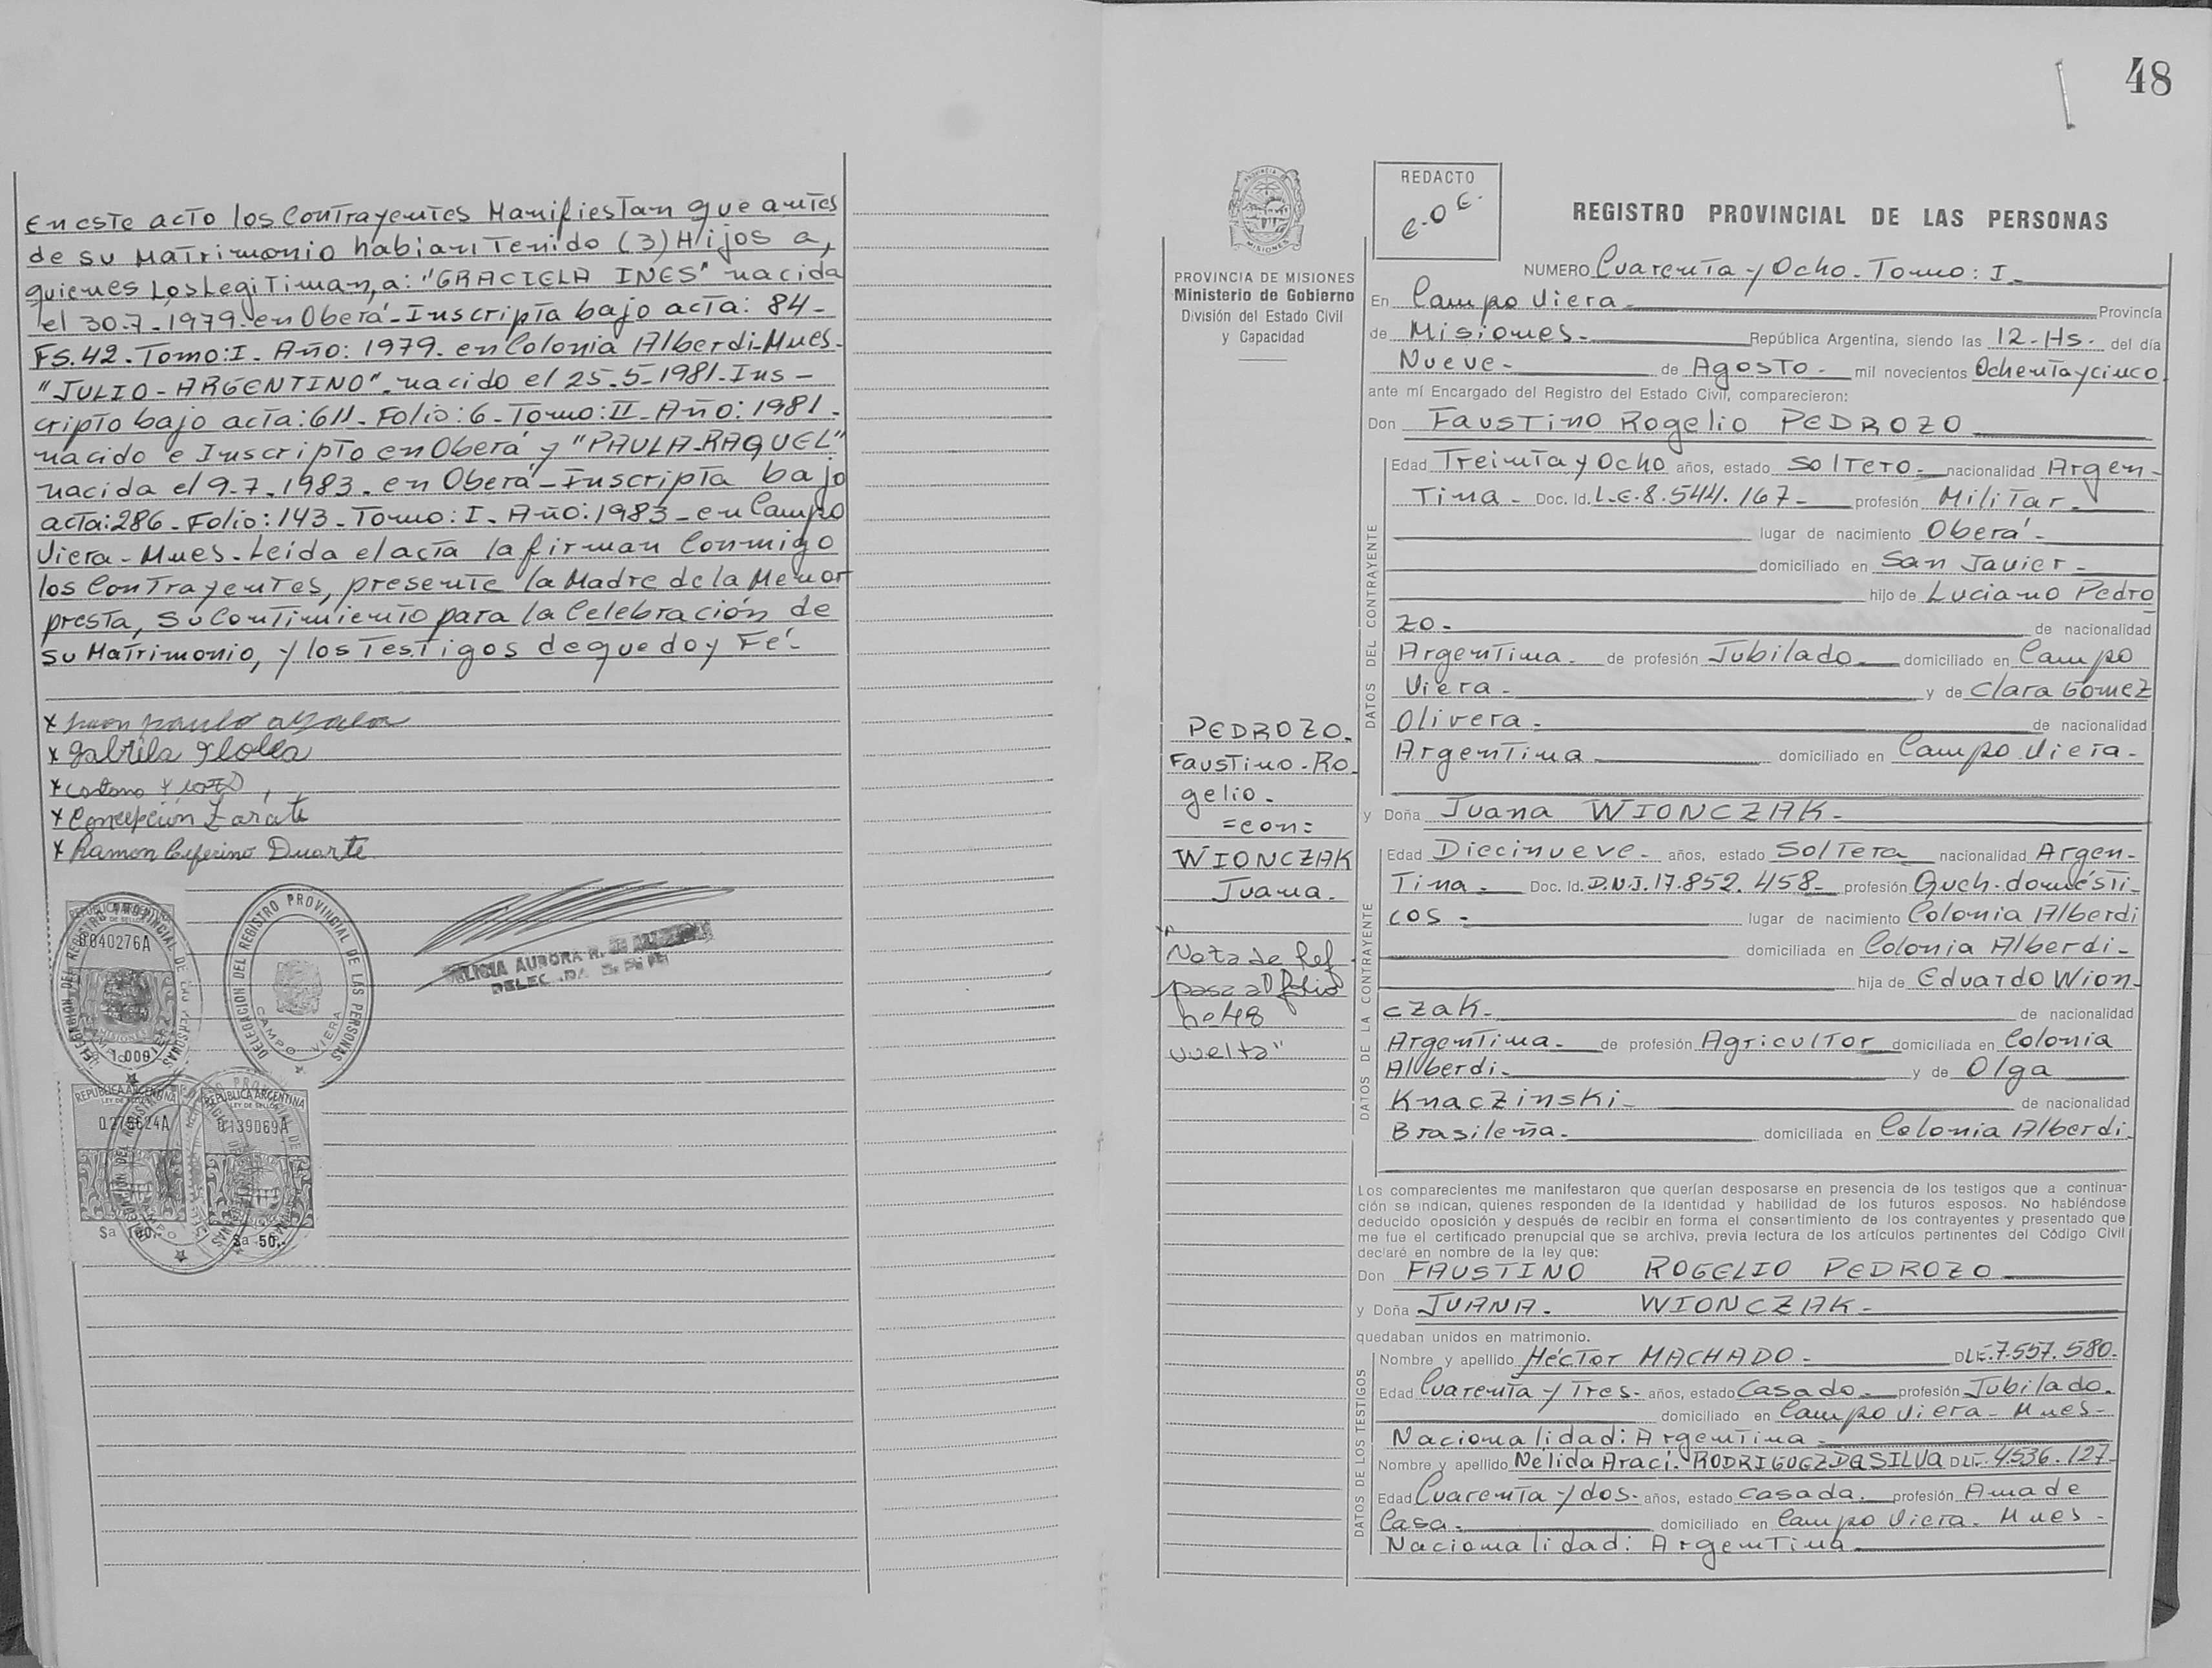 En este acto los Contrayentes Manifiestan que antes
de su Matrimonio habian Tenido (3) Hijos a,
quienes Los Legitiman, a: "GRACIELA INES" nacida
el 30-7-1979. en Oberá-Inscripta bajo acta: 84-
FS. 42. Tomo: I. Año: 1979. en Colonia Alberdi-Mnes-
"JULIO-ARGENTINO". nacido el 25-5-1981. Ins-
cripto bajo acta: 611- Folio: 6- Tomo: II- Año: 1981.
nacido e Inscripto en Oberá y "PAULA-RAQUEL"
nacida el 9-7-1983. en Oberá-Inscripta bajo
acta: 286- Folio: 143- Tomo: I. Año: 1983- en Campo
Viera- Mnes- Leída el acta la firman Conmigo
los Contrayentes, presente la Madre de la Menor
presta, su Contimiento para la Celebración de
su Matrimonio, y los Testigos de que doy Fé-
x Gabriela
x Concepción Zarate
x Ramon Ceferino Duarte
ALICIA AURORA R.
DELEGADA
DELEGACION DEL REGISTRO PROVINCIAL DE LAS PERSONAS
CAMPO VIERA
REPUBLICA ARGENTINA
0040276A
1.000
REPUBLICA ARGENTINA
LEY DE SELLOS
0139069A
$a 50.-
48
PROVINCIA DE MISIONES
Ministerio de Gobierno
División del Estado Civil
y Capacidad
REDACTO
REGISTRO PROVINCIAL DE LAS PERSONAS
NUMERO Cuarenta y Ocho- Tomo: I-
En Campo Viera- Provincia
de Misiones- República Argentina, siendo las 12-Hs- del día
Nueve- de Agosto- mil novecientos Ochenta y cinco
ante mí Encargado del Registro del Estado Civil, comparecieron:
Don Faustino Rogelio PEDROZO
DATOS DEL CONTRAYENTE
Edad Treinta y Ocho años, estado Soltero- nacionalidad Argen-
Tina- Doc. Id. L.E. 8.544.167- profesión Militar-
lugar de nacimiento Oberá-
domiciliado en San Javier-
hijo de Luciano Pedro
zo- de nacionalidad
Argentina- de profesión Jubilado- domiciliado en Campo
Viera- y de Clara Gomez
Olivera- de nacionalidad
Argentina domiciliado en Campo Viera-
y Doña Juana WIONCZAK-
DATOS DE LA CONTRAYENTE
Edad Diecinueve- años, estado Soltera nacionalidad Argen-
Tina- Doc. Id. D.N.I. 17.852.458- profesión Quch-domésti-
cos- lugar de nacimiento Colonia Alberdi
domiciliada en Colonia Alberdi-
hija de Eduardo Wion-
czak- de nacionalidad
Argentina- de profesión Agricultor domiciliada en Colonia
Alberdi- y de Olga
Knaczinski- de nacionalidad
Brasileña- domiciliada en Colonia Alberdi-
PEDROZO-
Faustino-Ro
gelio-
=con=
WIONCZAK
Juana-
"
Nota de Ref
pasa al folio
no 48
vuelta"
Los comparecientes me manifestaron que querían desposarse en presencia de los testigos que a continua-
ción se indican, quienes responden de la identidad y habilidad de los futuros esposos. No habiéndose
deducido oposición y después de recibir en forma el consentimiento de los contrayentes y presentado que
me fue el certificado prenupcial que se archiva, previa lectura de los artículos pertinentes del Código Civil
declaré en nombre de la ley que:
Don FAUSTINO ROGELIO PEDROZO
y Doña JUANA- WIONCZAK-
quedaban unidos en matrimonio.
DATOS DE LOS TESTIGOS
Nombre y apellido Héctor MACHADO- DLE-7.557.580-
Edad Cuarenta y Tres- años, estado Casado- profesión Jubilado-
domiciliado en Campo Viera- Mnes-
Nacionalidad: Argentina-
Nombre y apellido Nélida Araci- RODRIGUEZ DA SILVA DLE- 4.536.127-
Edad Cuarenta y dos- años, estado casada- profesión Ama de
Casa- domiciliado en Campo Viera- Mnes-
Nacionalidad: Argentina